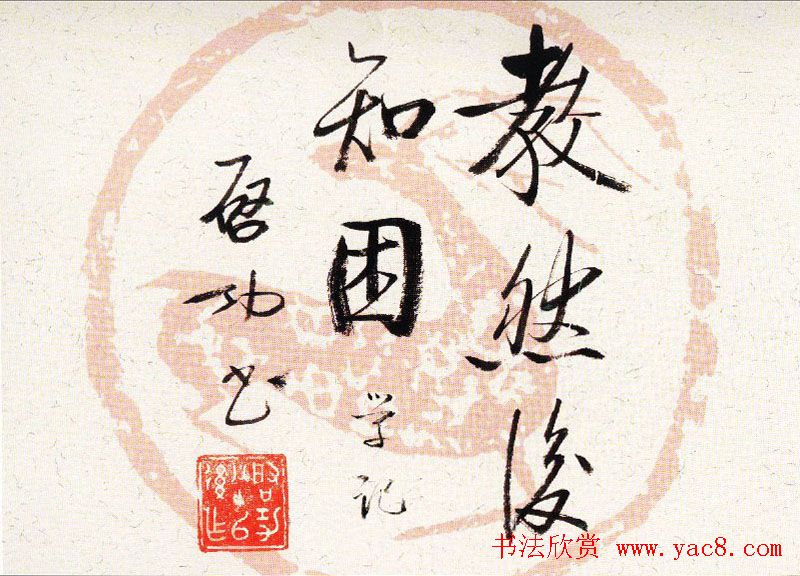 教然後
知困 学记
启功书
书法欣赏 www.yac8.com